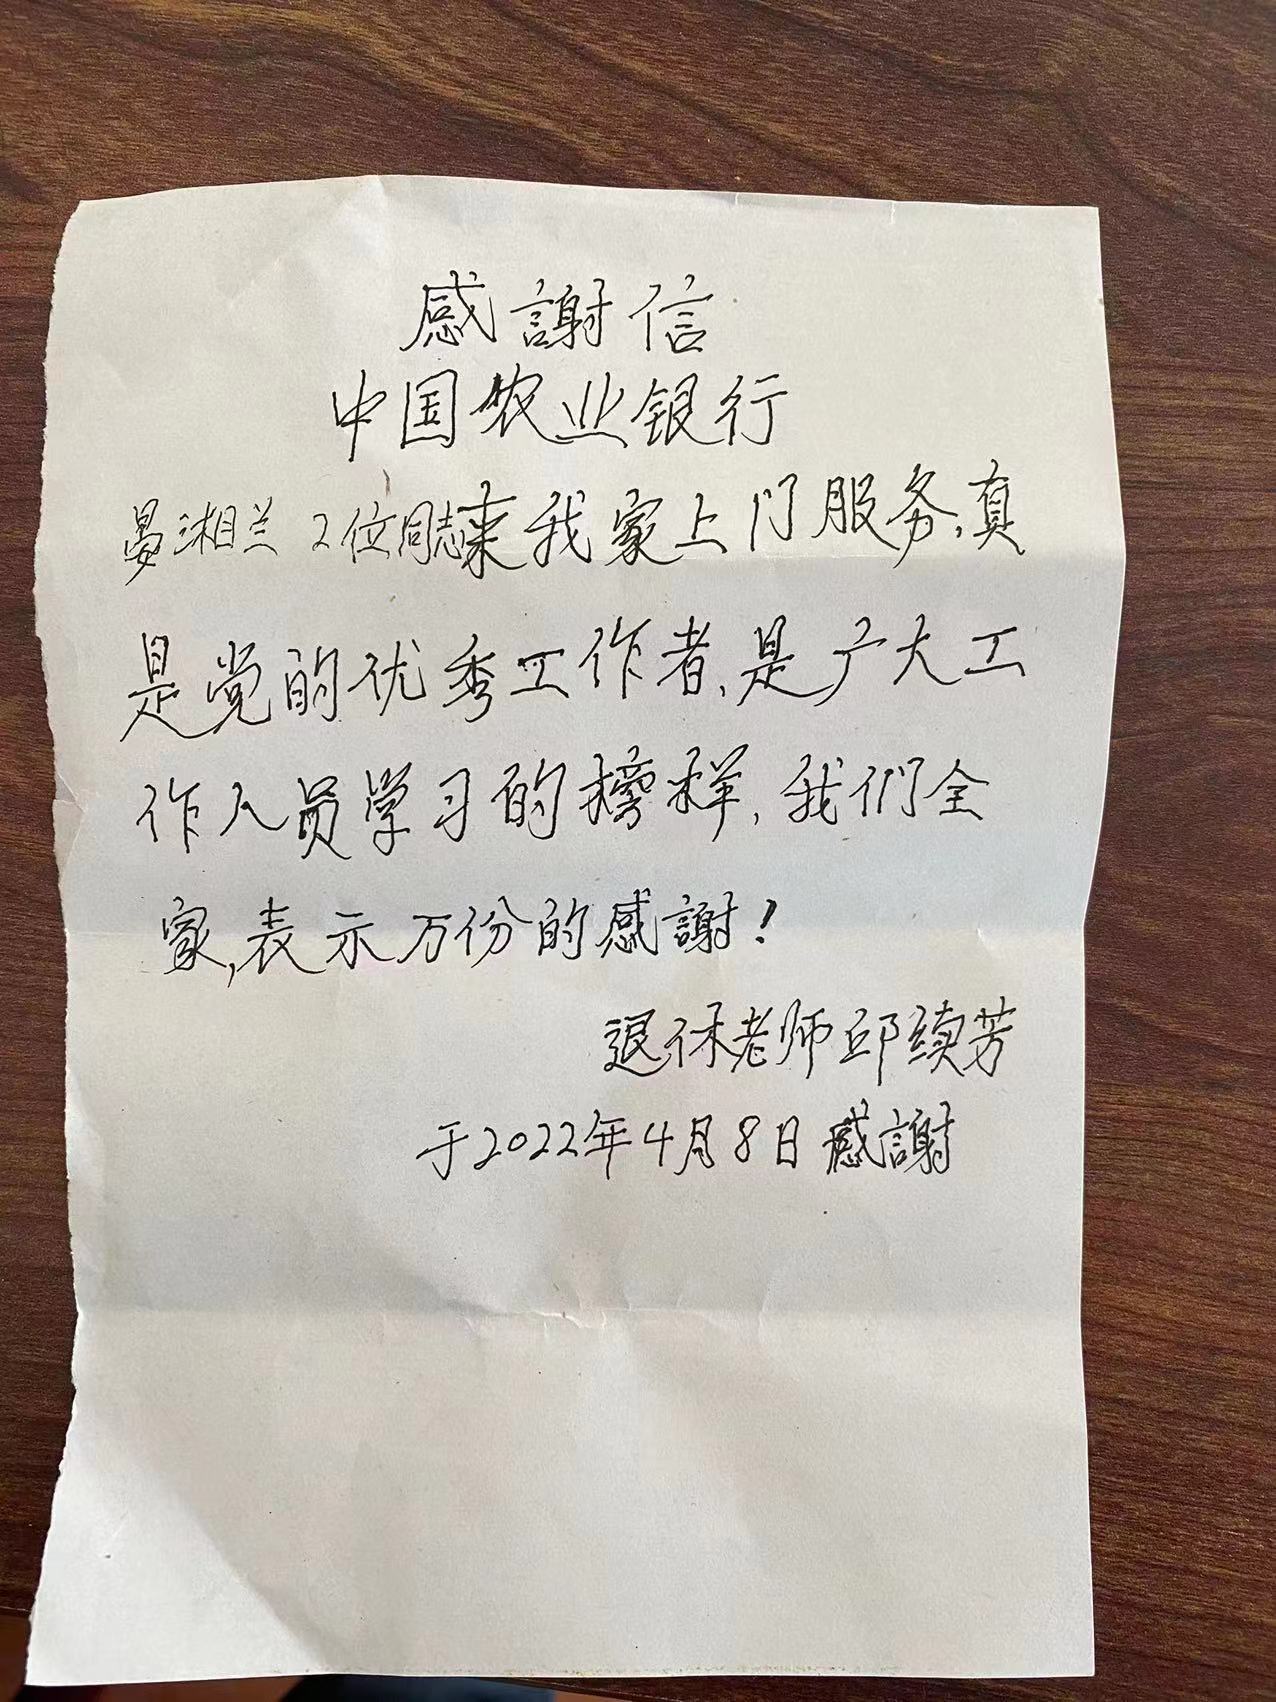 感謝信
中国农业银行
晏湘兰 2位同志来我家上门服务,真
是党的优秀工作者,是广大工
作人员学习的榜样,我们全
家,表示万份的感謝!
退休老师邱续芳
于2022年4月8日感謝